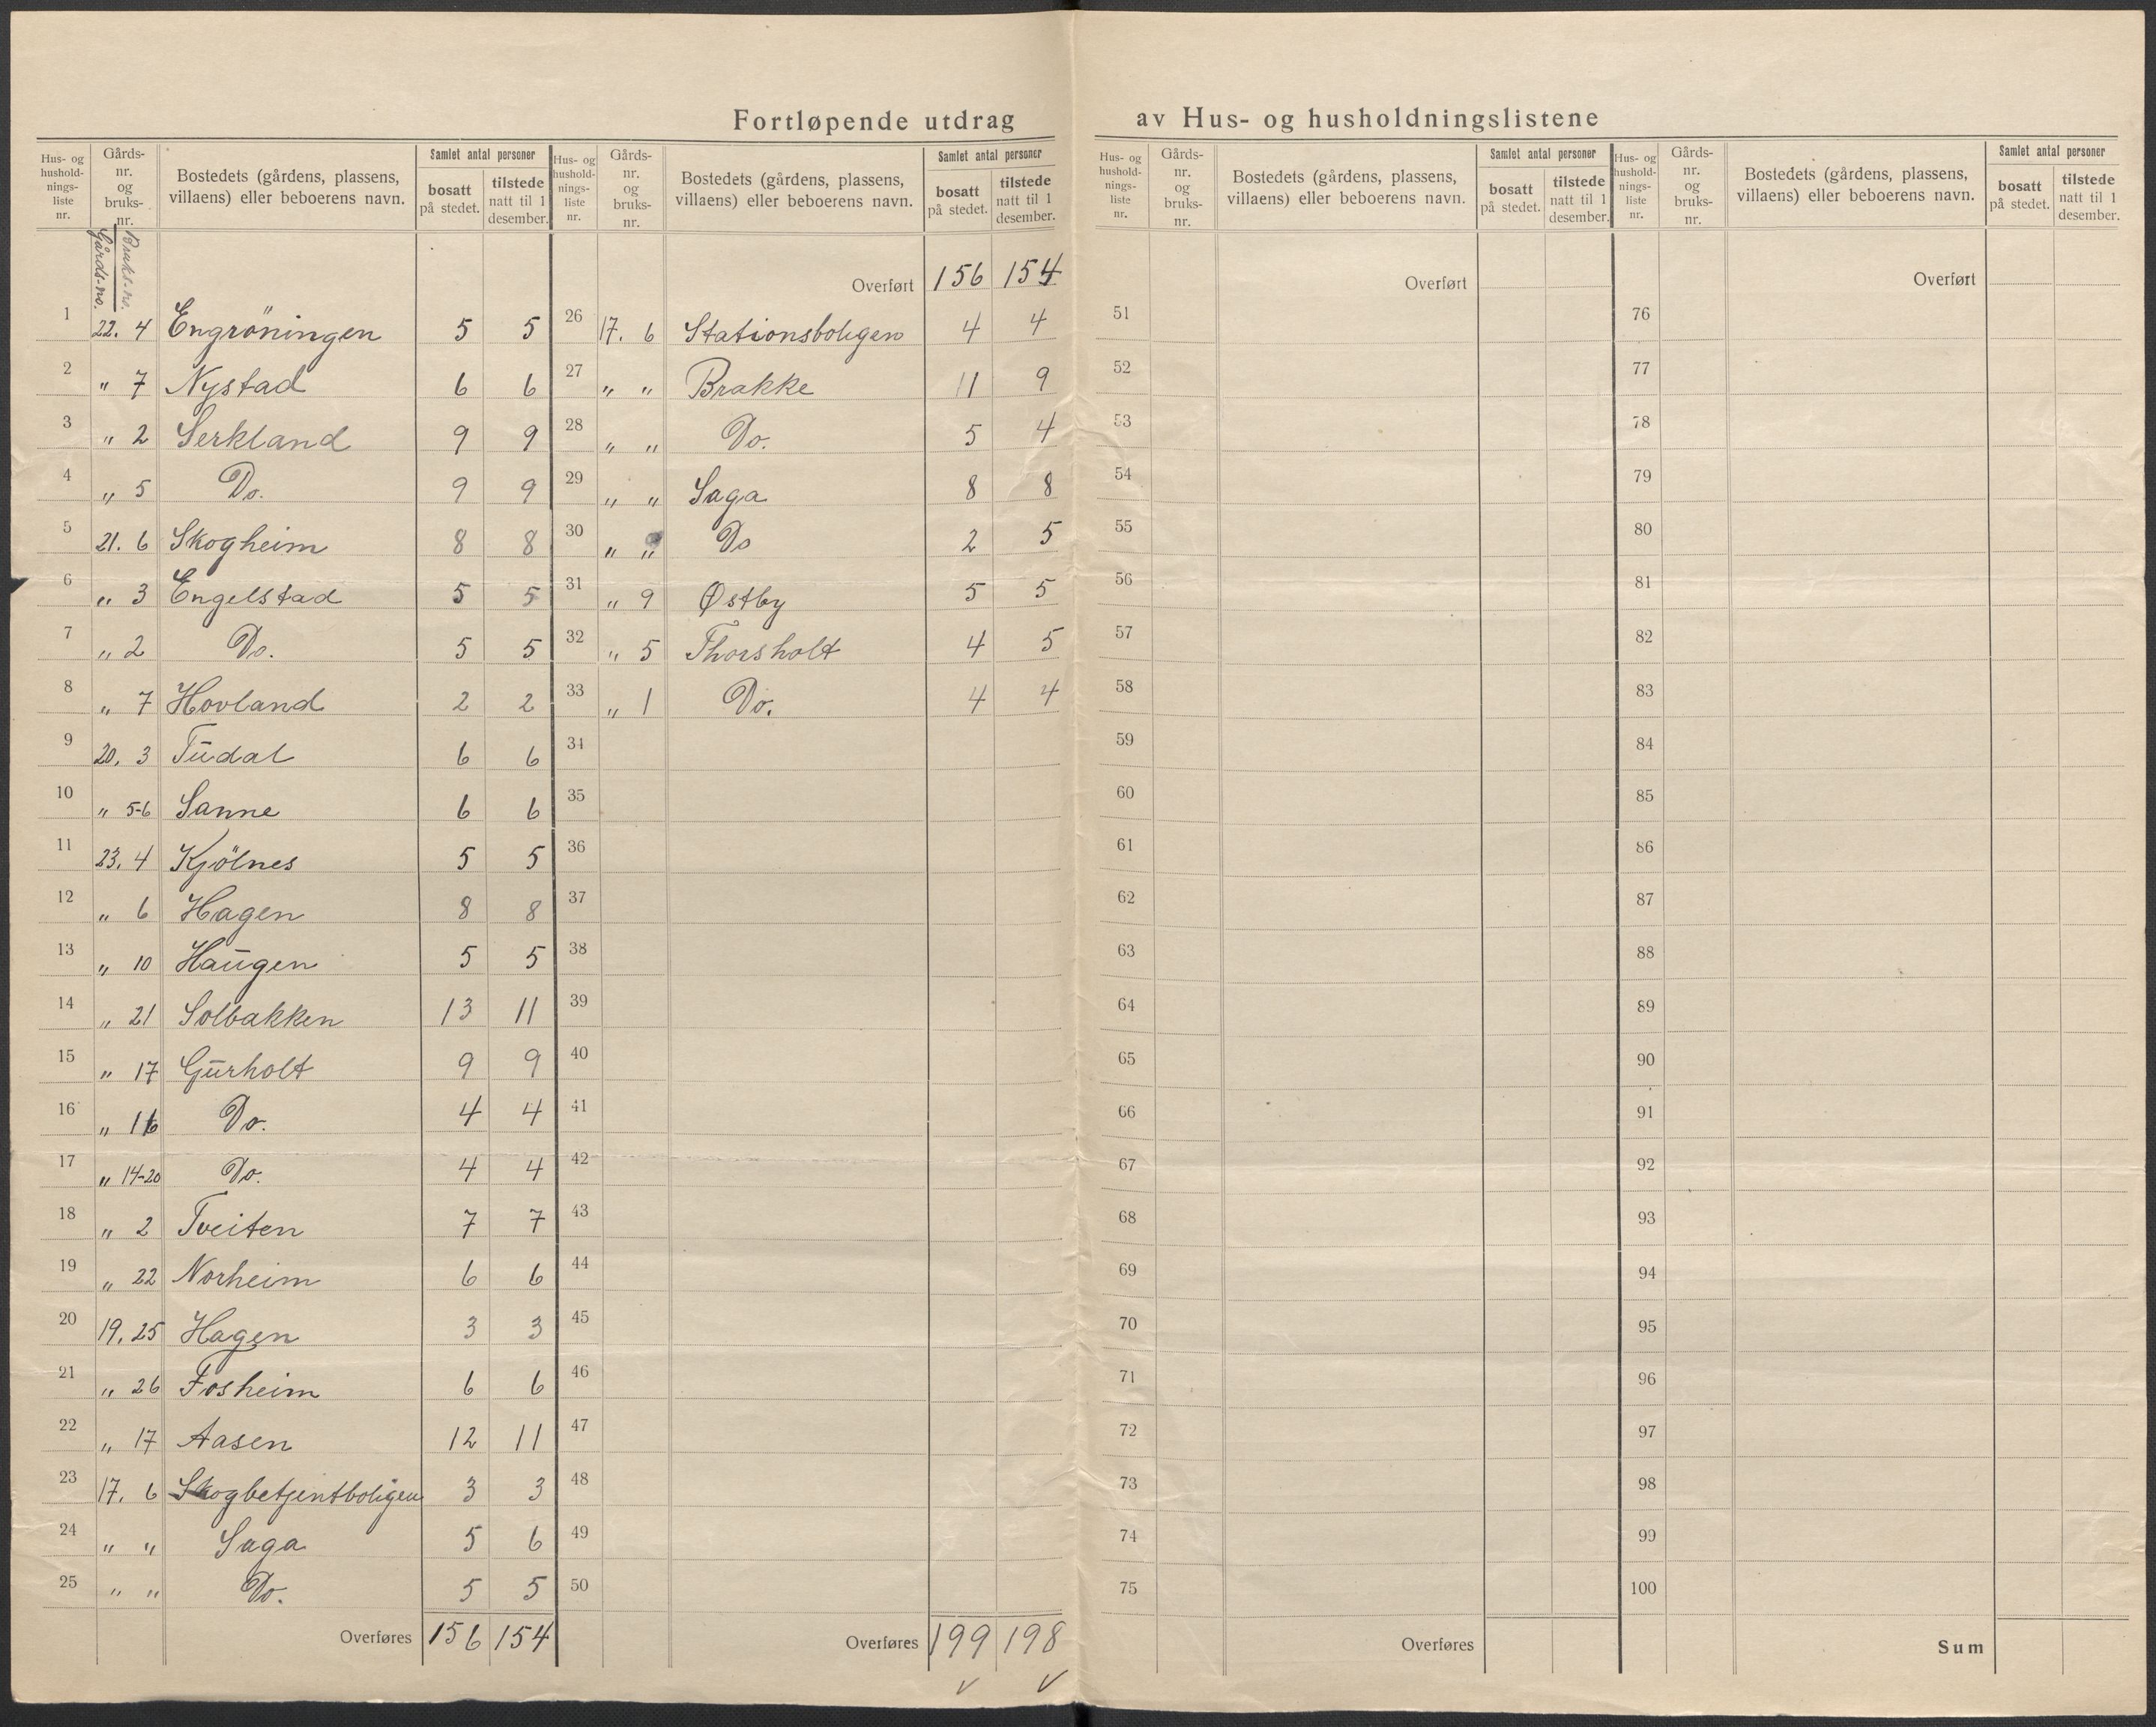 Fortløpende utdrag av Hus- og husholdningslistene
Hus- og husholdnings-liste nr. | Gårds-nr. og bruks-nr. | Bostedets (gårdens, plassens, villaens) eller beboerens navn. | Samlet antal personer | bosatt på stedet. | tilstede natt til 1 desember.
Gårds-no. Bruks-no.
1 22. 4 Engröningen 5 5
2 " 7 Nystad 6 6
3 " 2 Serkland 9 9
4 " 5 Do. 9 9
5 21. 6 Skogheim 8 8
6 " 3 Engelstad 5 5
7 " 2 Do. 5 5
8 " 7 Hovland 2 2
9 20. 3 Tudal 6 6
10 " 5-6 Sanne 6 6
11 23. 4 Kjölnes 5 5
12 " 6 Hagen 8 8
13 " 10 Haugen 5 5
14 " 21 Solbakken 13 11
15 " 17 Gurholt 9 9
16 " 16 Do. 4 4
17 " 14-20 Do. 4 4
18 " 2 Tveiten 7 7
19 " 22 Norheim 6 6
20 19. 25 Hagen 3 3
21 " 26 Fosheim 6 6
22 " 17 Aasen 12 11
23 17. 6 Skogbetjentboligen 3 3
24 " " Saga 5 6
25 " " Do. 5 5
Overføres 156 154
Hus- og hushold-nings-liste nr. | Gårds-nr. og bruks-nr. | Bostedets (gårdens, plassens, villaens) eller beboerens navn. | Samlet antal personer | bosatt på stedet. | tilstede natt til 1 desember.
Overført 156 154
26 17. 6 Stationsboligen 4 4
27 " " Brakke 11 9
28 " " Do. 5 4
29 " " Saga 8 8
30 " " Do 2 5
31 " 9 Østby 5 5
32 " 5 Thorsholt 4 5
33 " 1 Do. 4 4
34
35
36
37
38
39
40
41
42
43
44
45
46
47
48
49
50
Overføres 199 198
Hus- og hushold-nings-liste nr. | Gårds-nr. og bruks-nr. | Bostedets (gårdens, plassens, villaens) eller beboerens navn. | Samlet antal personer | bosatt på stedet. | tilstede natt til 1 desember.
Overført
51
52
53
54
55
56
57
58
59
60
61
62
63
64
65
66
67
68
69
70
71
72
73
74
75
Overføres
Hus- og hushold-nings-liste nr. | Gårds-nr. og bruks-nr. | Bostedets (gårdens, plassens, villaens) eller beboerens navn. | Samlet antal personer | bosatt på stedet. | tilstede natt til 1 desember.
Overført
76
77
78
79
80
81
82
83
84
85
86
87
88
89
90
91
92
93
94
95
96
97
98
99
100
Sum